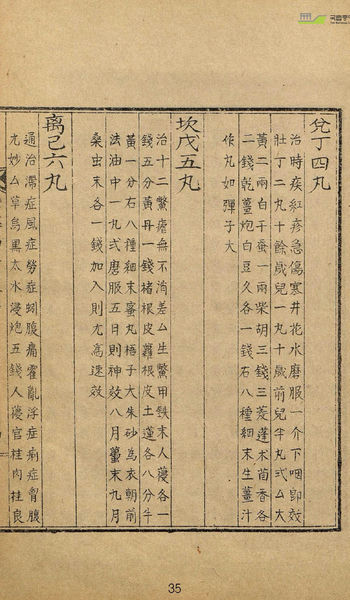 兌丁四丸
治時疾紅疹急傷寒井花水磨服一介下咽卽效
壯丁二丸十餘歲兒一丸十歲前兒半丸式ム大
黃二兩白干蚕一兩柴胡三錢三菱蓬朮茴香各
二錢乾薑炮白豆久各一錢石八種細末生薑汁
作丸如彈子大
坎戊五丸
治十二鱉瘡無不消差ム生鱉甲鉄末人蓡各一
錢五分黃丹一錢楮根皮蘿根皮土蓮各八分牛
黃一分石八種細末蜜丸梧子大朱砂爲衣朝前
法油中一丸式磨服五日則神效八月䘉末九月
桑虫末各一錢加入則尤高速效
离己六丸
通治滯症風症勞症蚓腹痛霍亂浮症痢症胷腹
尤妙ム草烏黑太水浸炮五錢人蓡官桂肉桂良
35